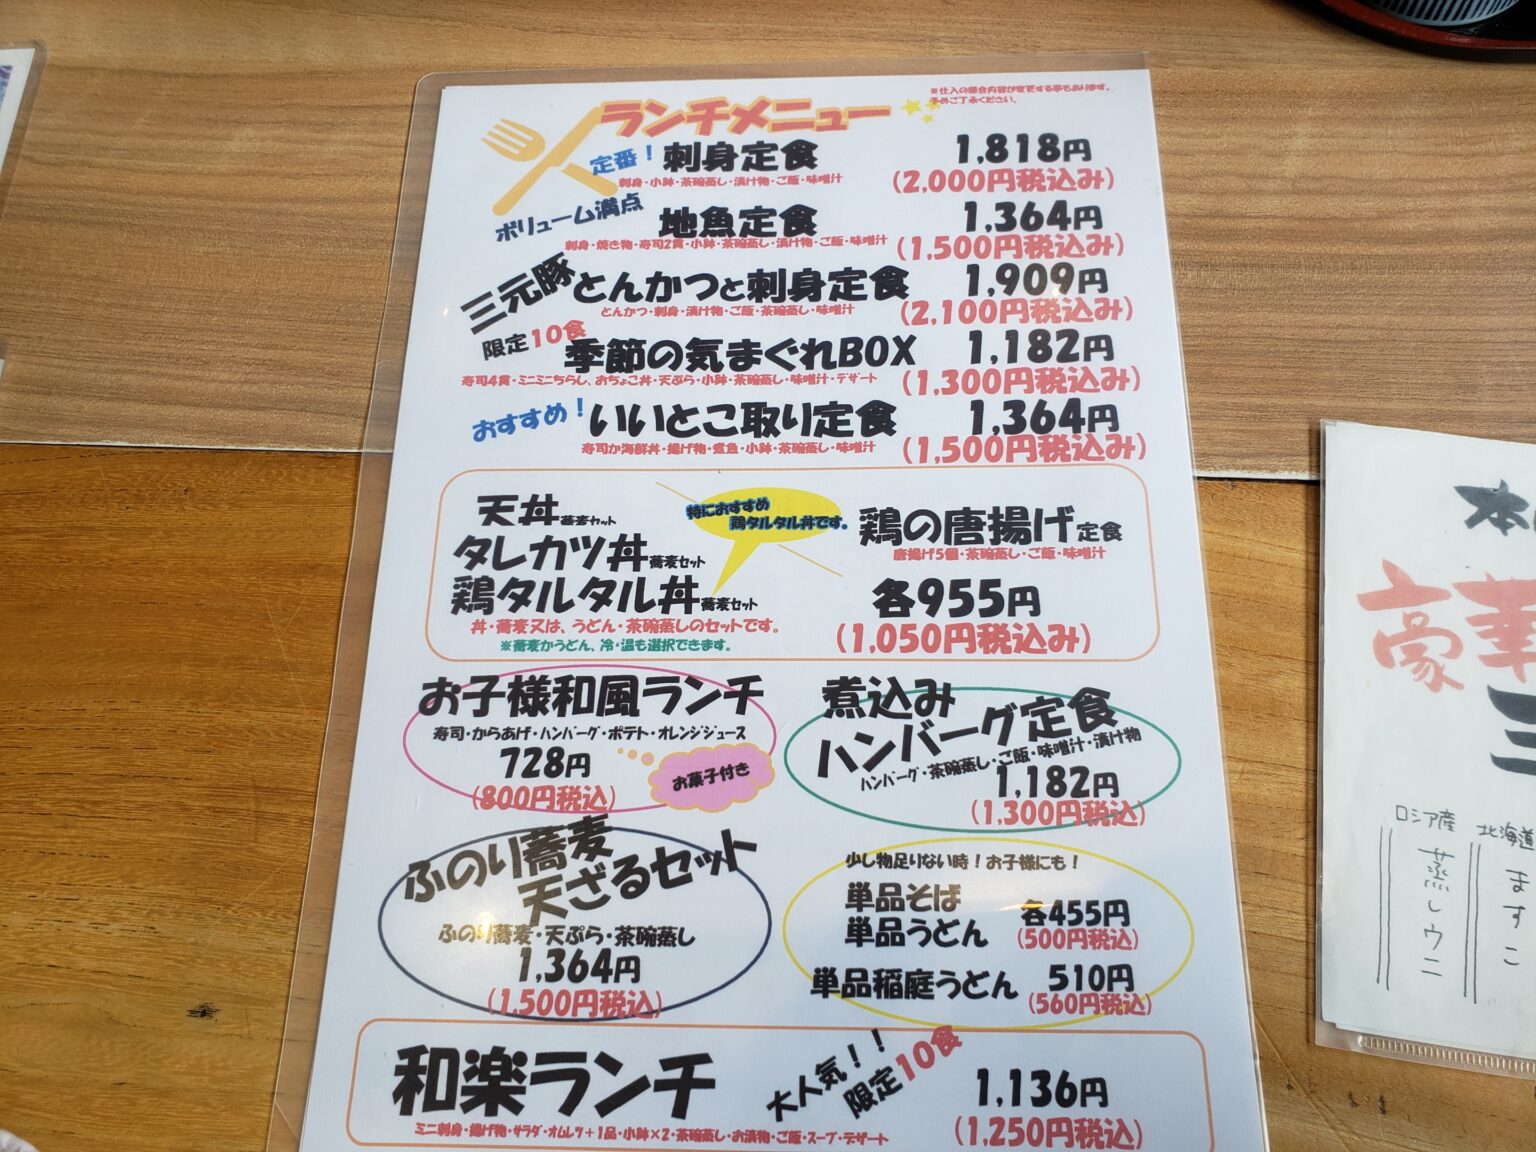 ランチメニュー
※仕入の都合内容が変更する事もあります。
予めご了承ください。
定番！ 刺身定食 1,818円
刺身・小鉢・茶碗蒸し・漬け物・ご飯・味噌汁 (2,000円税込み)
ボリューム満点 地魚定食 1,364円
刺身・焼き物・寿司2貫・小鉢・茶碗蒸し・漬け物・ご飯・味噌汁 (1,500円税込み)
三元豚とんかつと刺身定食 1,909円
とんかつ・刺身・漬け物・ご飯・茶碗蒸し・味噌汁 (2,100円税込み)
限定10食 季節の気まぐれBOX 1,182円
寿司4貫・ミニミニちらし、おちょこ丼・天ぷら・小鉢・茶碗蒸し・味噌汁・デザート (1,300円税込み)
おすすめ！ いいとこ取り定食 1,364円
寿司か海鮮丼・揚げ物・煮魚・小鉢・茶碗蒸し・味噌汁 (1,500円税込み)
天丼蕎麦セット
タレカツ丼蕎麦セット
鶏タルタル丼蕎麦セット
丼・蕎麦又は、うどん・茶碗蒸しのセットです。
※蕎麦かうどん、冷・温も選択できます。
特におすすめ
鶏タルタル丼です。
鶏の唐揚げ定食
唐揚げ5個・茶碗蒸し・ご飯・味噌汁
各955円
(1,050円税込み)
お子様和風ランチ
寿司・からあげ・ハンバーグ・ポテト・オレンジジュース
728円
(800円税込)
お菓子付き
煮込み
ハンバーグ定食
ハンバーグ・茶碗蒸し・ご飯・味噌汁・漬け物
1,182円
(1,300円税込)
ふのり蕎麦
天ざるセット
ふのり蕎麦・天ぷら・茶碗蒸し
1,364円
(1,500円税込)
少し物足りない時！お子様にも！
単品そば
単品うどん
各455円
(500円税込)
単品稲庭うどん 510円
(560円税込)
和楽ランチ
大人気！！
限定10食
1,136円
ミニ刺身・揚げ物・サラダ・オムレツ+1品・小鉢×2・茶碗蒸し・お漬物・ご飯・スープ・デザート (1,250円税込)
本
豪華
三
北海道
ますこ
ロシア産
蒸しウニ